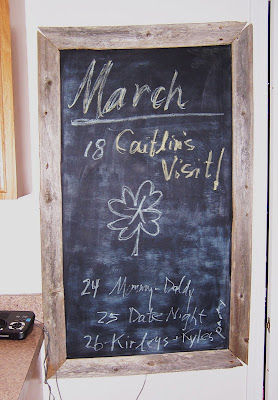 March
18 Caitlin's
Visit!
24 Mommy-Daddy
25 Date Night
26-Kinleys + Kyles
Party